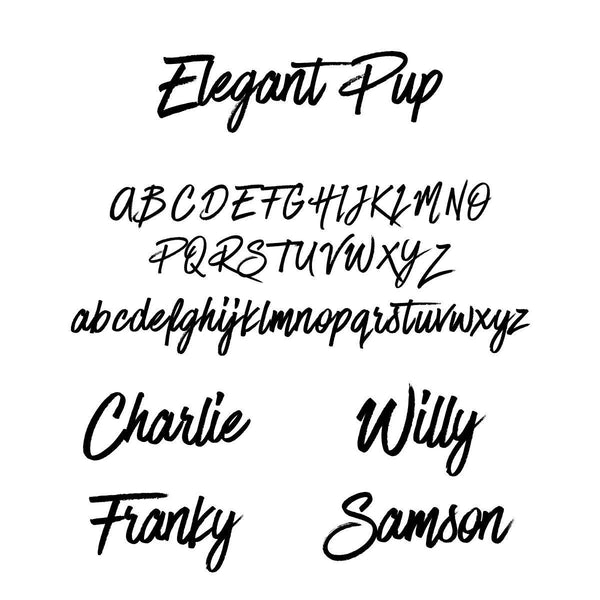 Elegant Pup
ABCDEFGHIJKLMNO
PQRSTUVWXYZ
abcdefghijklmnopqrstuvwxyz
Charlie Willy
Franky Samson